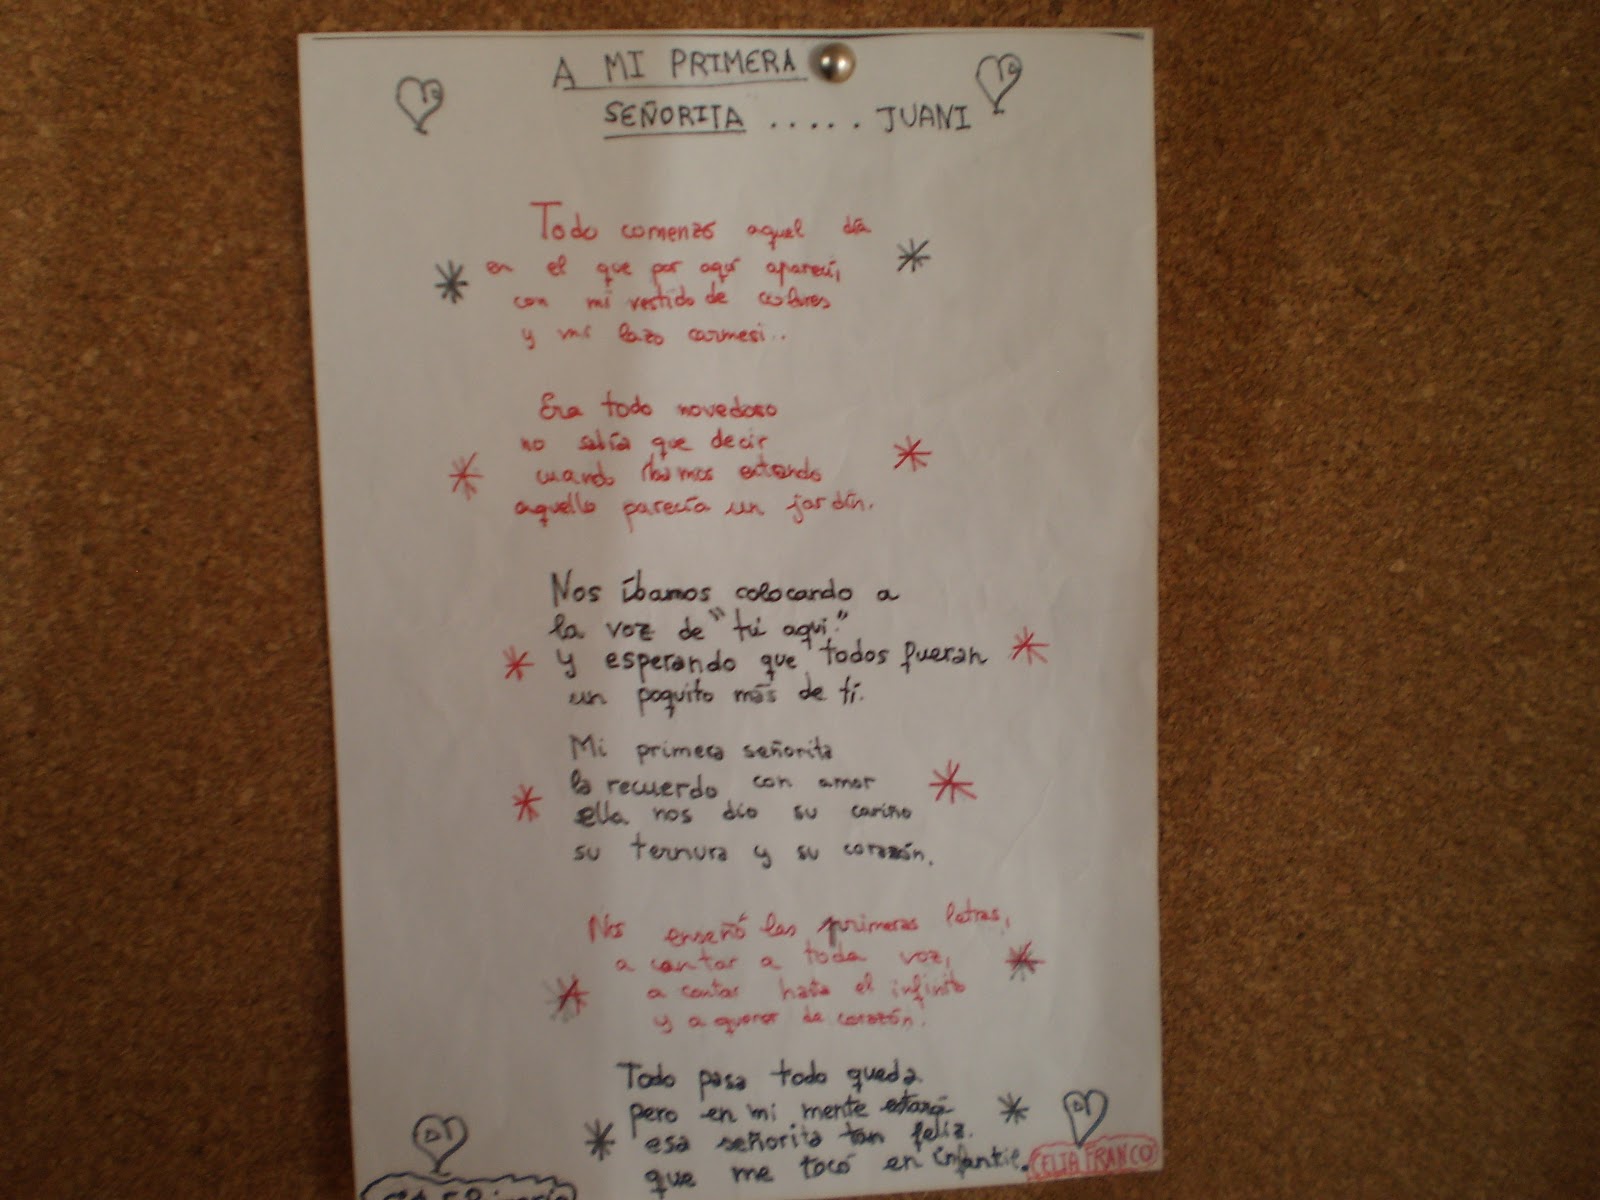 A MI PRIMERA
SEÑORITA ..... JUANI
Todo comenzó aquel día
en el que por aquí aparecí,
con mi vestido de colores
y mi lazo carmesi..
Era todo novedoso
no sabía que decir
cuando íbamos entrando
aquello parecía un jardín.
Nos íbamos colocando a
la voz de "tú aqui."
y esperando que todos fueran
un poquito más de tí.
Mi primera señorita
la recuerdo con amor
ella nos dio su cariño
su ternura y su corazón.
Nos enseñó las primeras letras,
a cantar a toda voz,
a contar hasta el infinito
y a querer de corazón.
Todo pasa todo queda
pero en mi mente estará
esa señorita tan feliz.
que me tocó en infantil.
CELIA FRANCO
Primaria